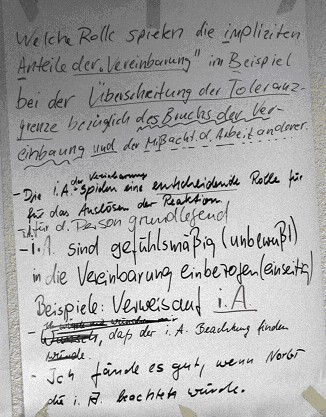 Welche Rolle spielen die impliziten
Anteile der „Vereinbarung" im Beispiel
bei der Überschreitung der Toleranz-
grenze bezüglich des Bruchs der Ver-
einbaung und der Mißacht. d. Arbeit anderer.
- Die i.A. der Vereinbarung spielen eine entscheidende Rolle für
für das Auslösen der Reaktion
für d. Person grundlegend
- i.A. sind gefühlsmäßig (unbewußt)
in die Vereinbarung einbezogen (einseitig)
Beispiele: Verweis auf i.A
- Wunsch, daß der i.A. Beachtung finden
würde.
- Ich fände es gut, wenn
die i.A. beachtet würde.